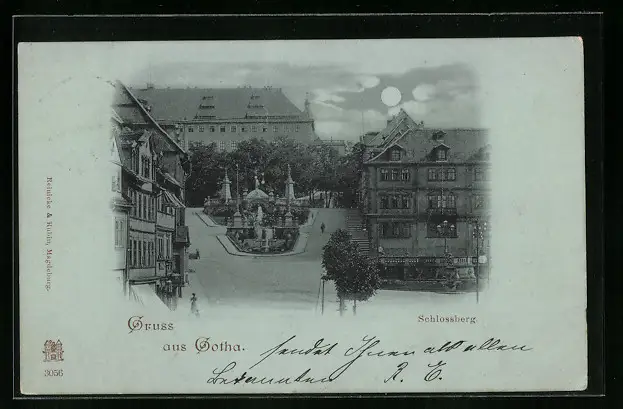 Reinicke & Rubin, Magdeburg.
Gruss
aus Gotha.
Schlossberg.
3056
sendet Ihnen als allen
Bekannten R. E.